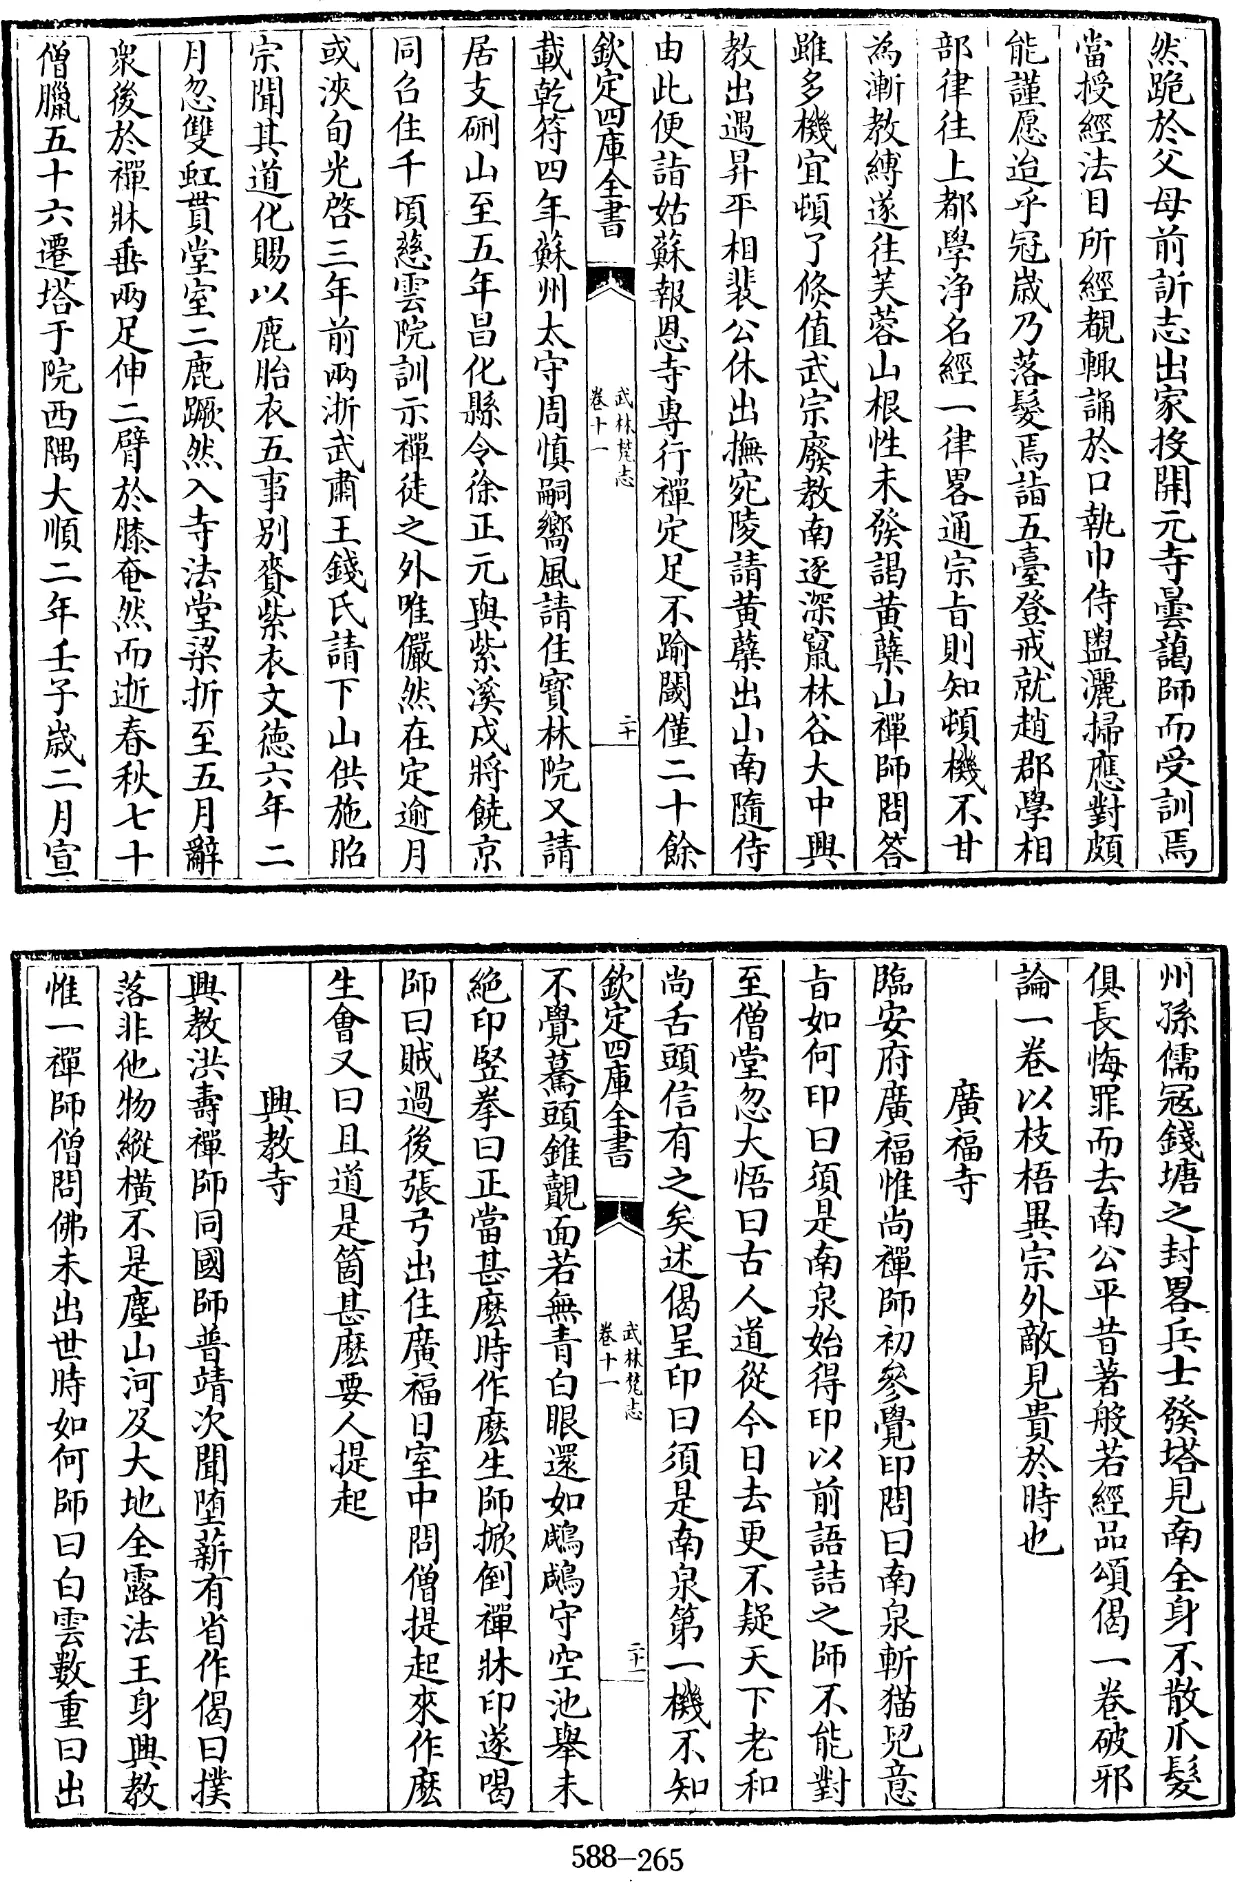 然跪於父母前訴志出家投開元寺曇藹師而受訓焉
當授經法目所經覩輙誦於口執巾侍盥灑掃應對頗
能謹愿迨乎冠歲乃落髮焉詣五臺登戒就趙郡學相
部律往上都學淨名經一律畧通宗旨則知頓機不甘
為漸教縛遂往芙蓉山根性未發謁黄蘗山禪師問答
雖多機宜頓了倐值武宗廢教南逐深竄林谷大中興
教出遇昇平相裴公休出撫宛陵請黄蘗出山南隨侍
由此便詣姑蘇報恩寺專行禪定足不踰閾僅二十餘
欽定四庫全書
武林梵志
卷十一
二十
載乾符四年蘇州太守周慎嗣嚮風請住寳林院又請
居支硎山至五年昌化縣令徐正元與紫溪戍將饒京
同召住千頃慈雲院訓示禪徒之外唯儼然在定逾月
或浹旬光啓三年前兩浙武肅王錢氏請下山供施昭
宗聞其道化賜以鹿胎衣五事别賚紫衣文德六年二
月忽雙虹貫堂室二鹿蹶然入寺法堂梁折至五月辭
衆後於禪牀垂兩足伸二臂於膝奄然而逝春秋七十
僧臘五十六遷塔于院西隅大順二年壬子歲二月宣
州孫儒冦錢塘之封畧兵士發塔見南全身不散爪髮
俱長悔罪而去南公平昔著般若經品頌偈一卷破邪
論一卷以枝梧異宗外敵見貴於時也
廣福寺
臨安府廣福惟尚禪師初參覺印問曰南泉斬猫兒意
旨如何印曰須是南泉始得印以前語詰之師不能對
至僧堂忽大悟曰古人道從今日去更不疑天下老和
尚舌頭信有之矣述偈呈印曰須是南泉第一機不知
欽定四庫全書
武林梵志
卷十一
二十一
不覺驀頭錐覿面若無青白眼還如鷓鷓守空池舉未
絶印竪拳曰正當甚麽時作麽生師掀倒禪牀印遂喝
師曰賊過後張弓出住廣福日室中問僧提起來作麽
生會又曰且道是箇甚麽要人提起
興教寺
興教洪壽禪師同國師普靖次聞堕薪有省作偈曰撲
落非他物縱横不是塵山河及大地全露法王身興教
惟一禪師僧問佛未出世時如何師曰白雲數重曰出
588-265